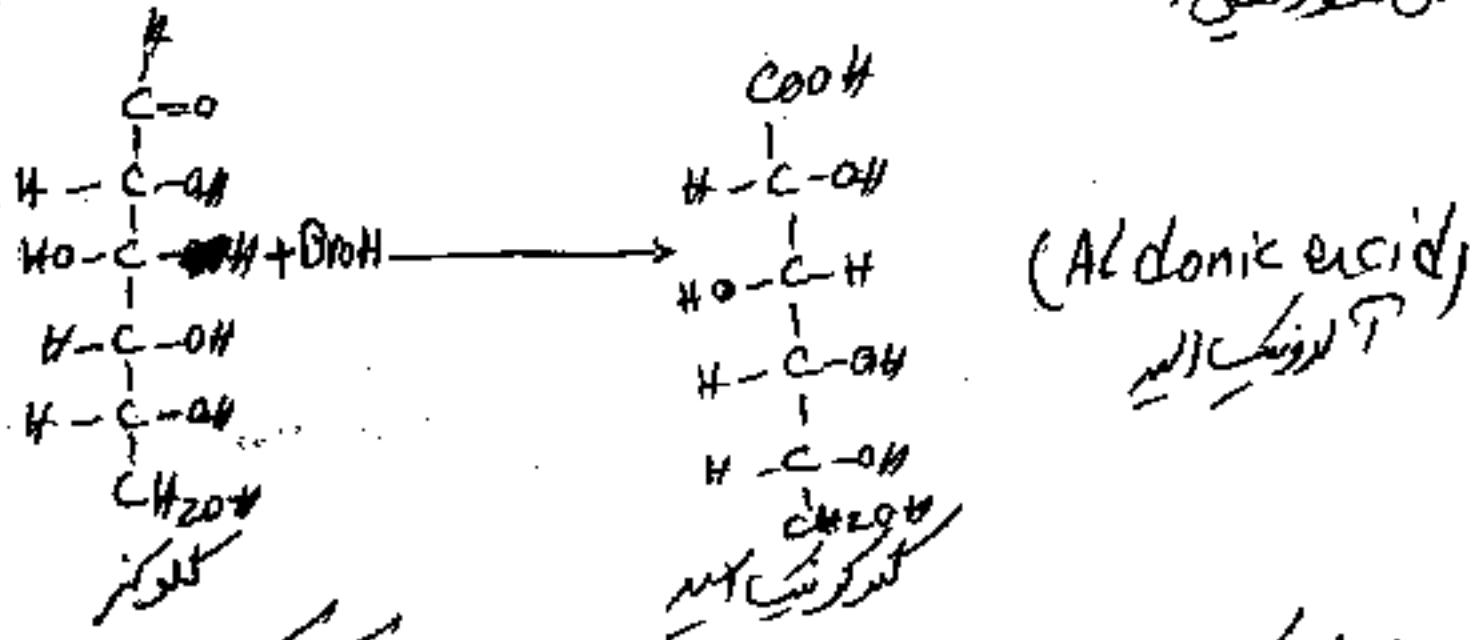 H
C=O
H-C-OH
HO-C-H + BroH
H-C-OH
H-C-OH
CH2OH
گلوکز
COOH
H-C-OH
HO-C-H
H-C-OH
H-C-OH
CH2OH
(Aldonic acid)
آلدونیک اسید